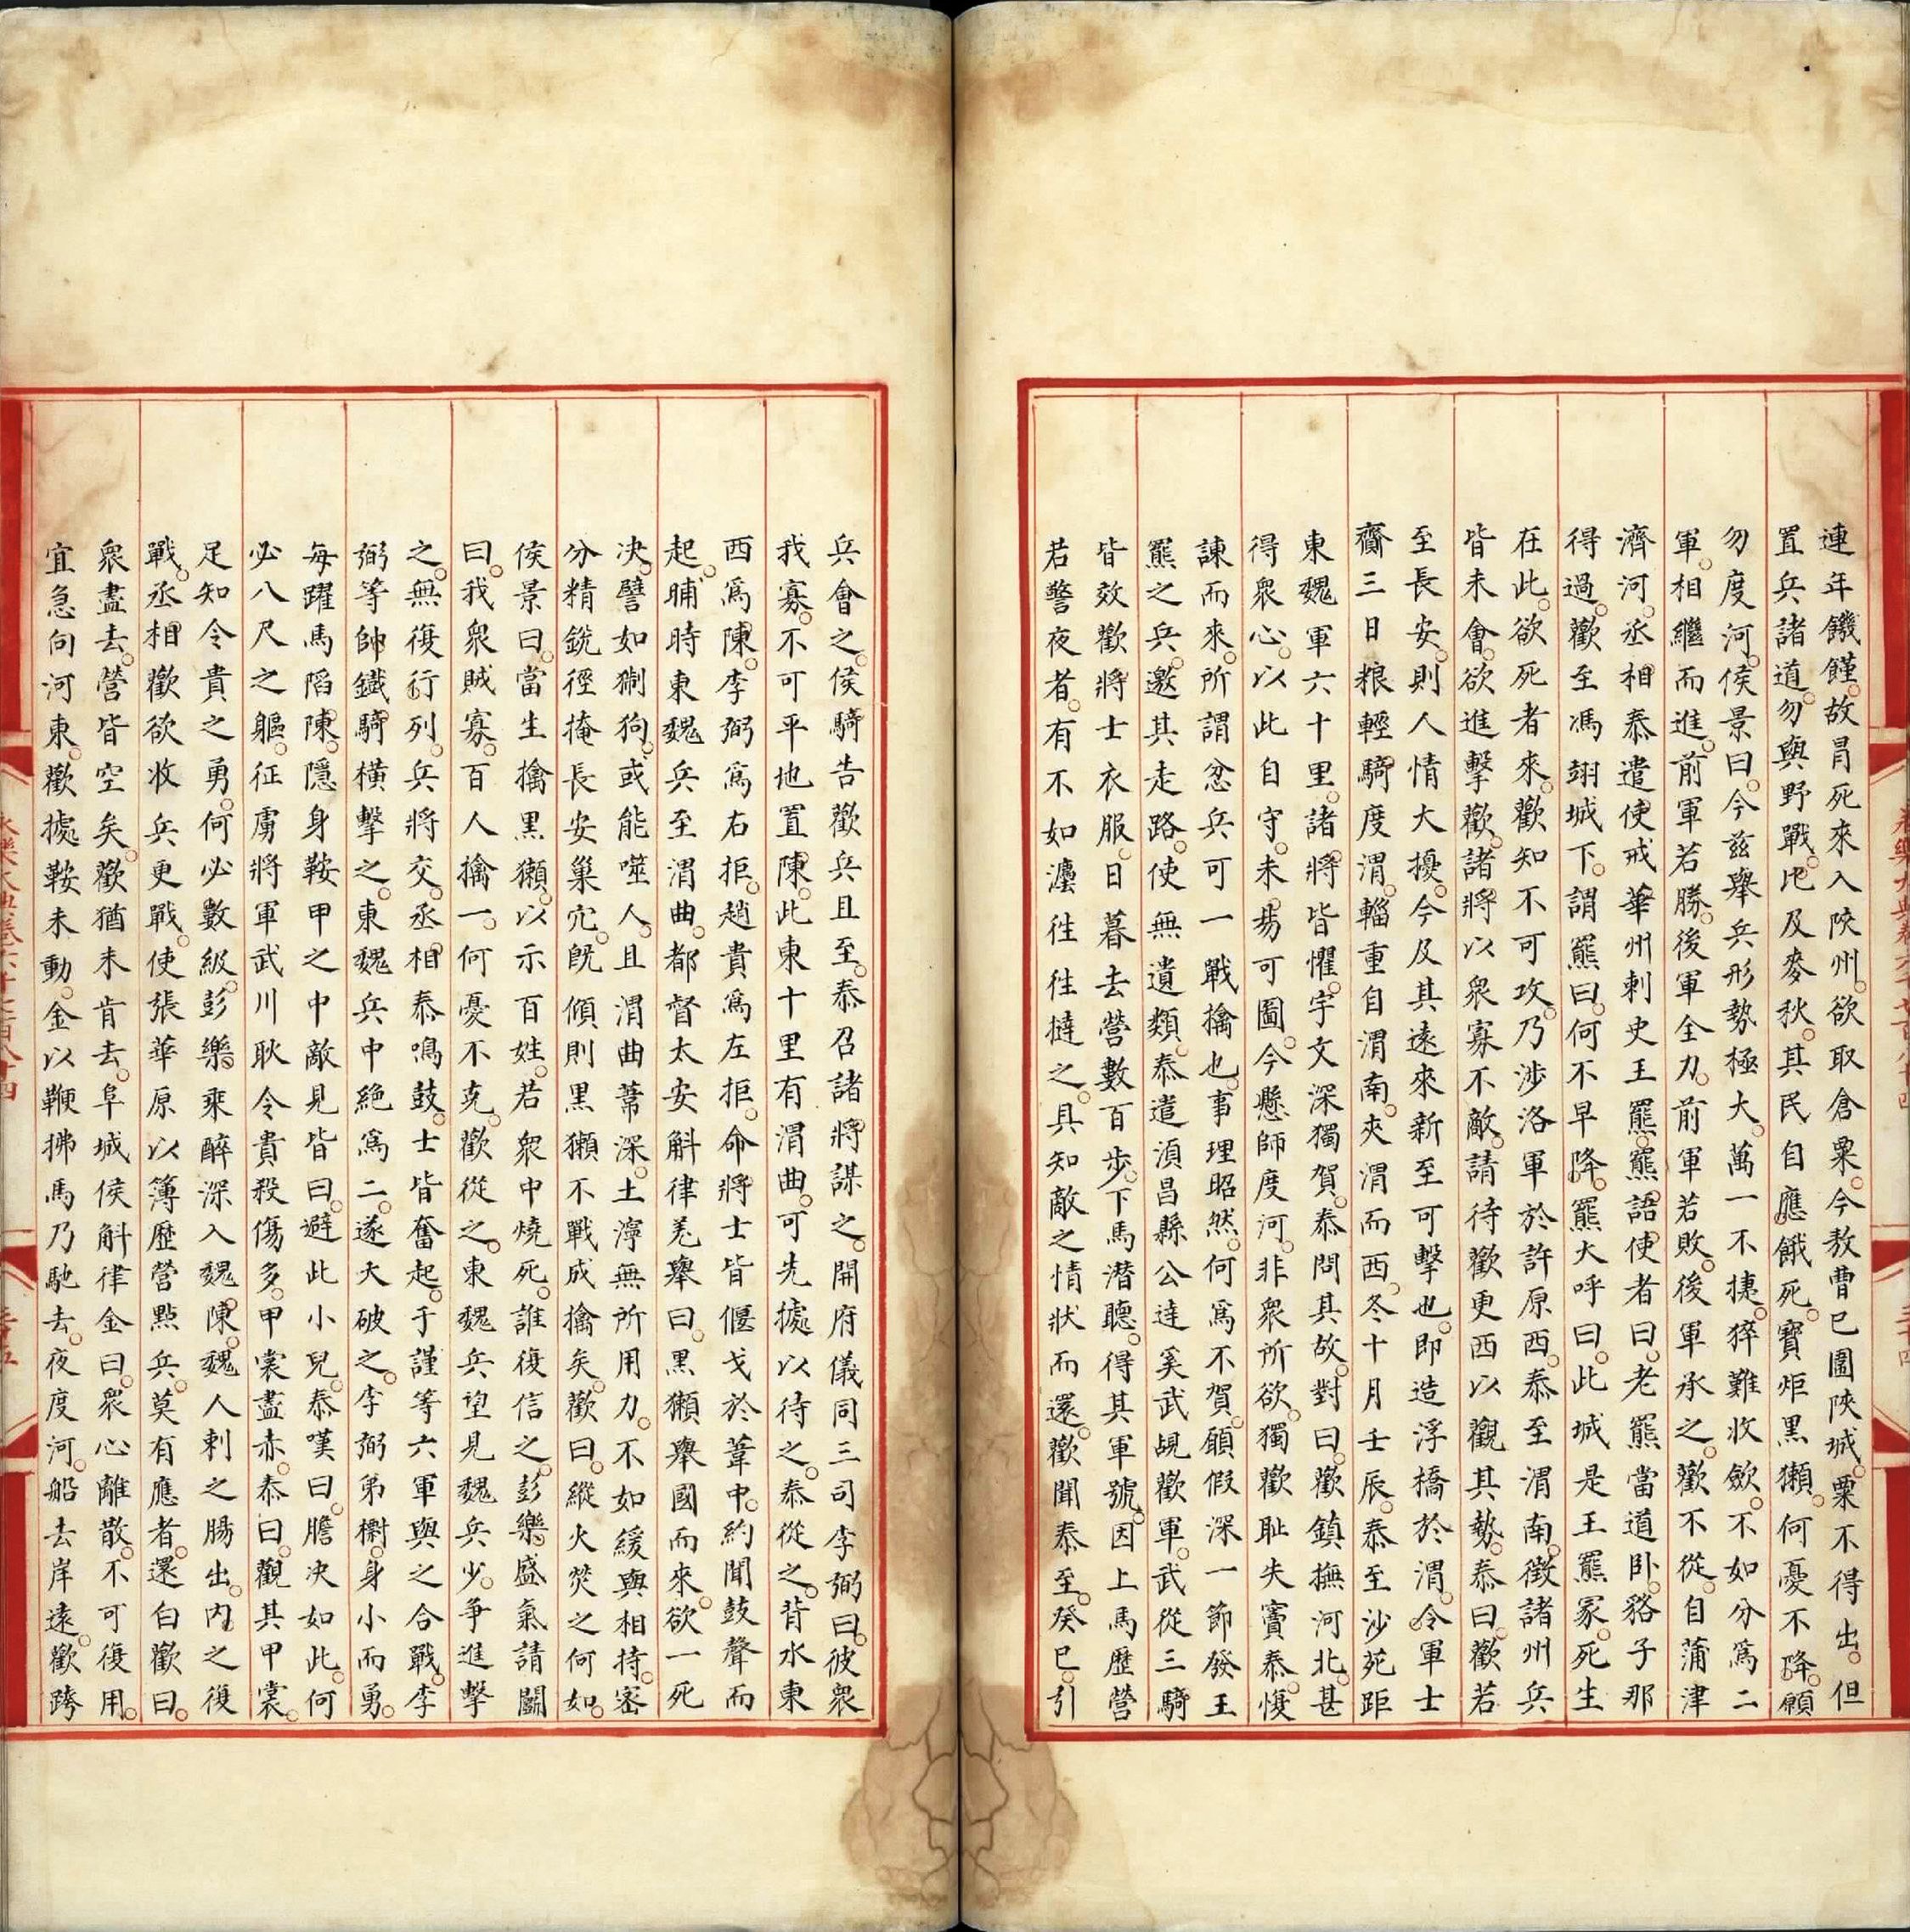 連年饑饉。故冐死來入陝州。欲取倉粟。今敖曹已圍陝城。粟不得出。但
置兵諸道。勿與野戰。比及麥秋。其民自應餓死。寶炬黑獺。何憂不降。願
勿度河。侯景曰。今兹舉兵形勢極大。萬一不捷。猝難收歛。不如分爲二
軍。相繼而進。前軍若勝。後軍全力。前軍若敗。後軍承之。歡不從。自蒲津
濟河。丞相泰遣使戒華州刺史王羆。羆語使者曰。老羆當道卧。貉子那
得過。歡至馮翊城下。謂羆曰。何不早降。羆大呼曰。此城是王羆冡。死生
在此。欲死者來。歡知不可攻。乃涉洛軍於許原西。泰至渭南。徵諸州兵
皆未會。欲進擊歡。諸將以衆寡不敵。請待歡更西以觀其勢。泰曰。歡若
至長安。則人情大擾。今及其遠來新至可擊也。即造浮橋於渭。令軍士
齎三日粮輕騎度渭。輜重自渭南。夾渭而西。冬十月壬辰。泰至沙苑距
東魏軍六十里。諸將皆懼。宇文深獨賀。泰問其故。對曰。歡鎮撫河北。甚
得衆心。以此自守。未易可圖。今懸師度河。非衆所欲。獨歡耻失竇泰。愎
諫而來。所謂忿兵可一戰擒也。事理昭然。何爲不賀。願假深一節發王
羆之兵。邀其走路。使無遺類。泰遣湏昌縣公逹奚武覘歡軍。武從三騎
皆效歡將士衣服。日暮去營數百步。下馬潜聽。得其軍號。因上馬歷營
若警夜者。有不如灋徃徃撻之。具知敵之情狀而還。歡聞泰至。癸巳。引
兵會之。侯騎告歡兵且至。泰召諸將謀之。開府儀同三司李弼曰。彼衆
我寡。不可平地置陳。此東十里有渭曲。可先據以待之。泰從之。背水東
西爲陳。李弼爲右拒。趙貴爲左拒。命將士皆偃戈於葦中。約聞鼓聲而
起。晡時東魏兵至渭曲。都督太安斛律羌舉曰。黑獺舉國而來。欲一死
决。譬如猘狗。或能噬人。且渭曲葦深。土濘無所用力。不如緩與相持。宻
分精銳徑掩長安巢穴。旣傾則黑獺不戰成擒矣。歡曰。縱火焚之何如。
侯景曰。當生擒黑獺。以示百姓。若衆中燒死。誰復信之。彭樂。盛氣請鬭
曰。我衆賊寡。百人擒一。何憂不克。歡從之。東魏兵望見魏兵少。争進擊
之。無復行列。兵將交。丞相泰鳴鼓。士皆奮起。于謹等六軍與之合戰。李
弼等帥鐵騎横擊之。東魏兵中絶爲二。遂大破之。李弼弟檦。身小而勇。
每躍馬䧟陳。隱身鞍甲之中敵見皆曰。避此小兒。泰嘆曰。膽决如此。何
必八尺之軀。征虜將軍武川耿令貴殺傷多。甲裳盡赤。泰曰。觀其甲裳。
足知令貴之勇。何必數級。彭樂。乘醉深入魏陳。魏人刺之腸出。内之復
戰。丞相歡欲收兵更戰。使張華原以簿歷營㸃兵。莫有應者。還白歡曰。
衆盡去。營皆空矣。歡猶未肯去。阜城侯斛律金曰。衆心離散。不可復用。
宜急向河東。歡據鞍未動。金以鞭拂馬乃馳去。夜度河。船去岸遠。歡跨